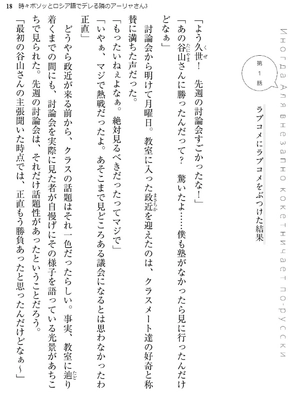 18　時々ボソッとロシア語でデレる隣のアーリャさん3
Иногда Аля внезапно кокетничает по-русски
第1話
ラブコメにラブコメをぶつけた結果
「よう久世ー！　先週の討論会すごかったな！」
「あの谷山さんに勝ったんだって？　驚いたよ……僕も塾がなかったら見に行ったんだけどなぁ」
　討論会から明けて月曜日。教室に入った政近を迎えたのは、クラスメート達の好奇と称賛に満ちた声だった。
「もったいねぇよなぁ。絶対見るべきだったってマジで」
「いやぁ、マジで熱戦だったよ。あそこまで見どころある議会になるとは思わなかったわ正直」
　どうやら政近が来る前から、クラスの話題はそれ一色だったらしい。事実、教室に辿り着くまでの間にも、討論会を実際に見た者が自慢げにその様子を語っている光景があちこちで見られた。先週の討論会は、それだけ話題性があったということだろう。
「最初の谷山さんの主張聞いた時点では、正直もう勝負あったと思ったんだけどなぁ～